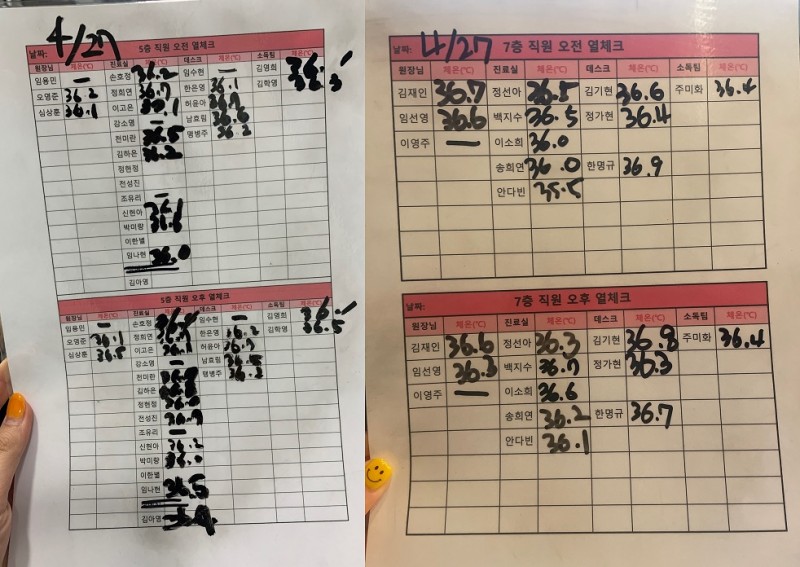 날짜: 4/27 5층 직원 오전 열체크
원장님 체온(℃) 진료실 체온(℃) 데스크 체온(℃) 소독팀 체온(℃)
임용민 — 손호정 36.2 임수현 — 김영희
오명준 36.2 정희연 36.7 한은영 36.1 김학영
심상훈 36.1 이고은 허윤아
강소영 — 남효림 36.6
전미란 36.5 맹병주 36.2
김하은 36.2
정현정
전성진
조유리 —
신현아
박미랑
이한별
임나현 36.0
김아영
5층 직원 오후 열체크
원장님 체온(℃) 진료실 체온(℃) 데스크 체온(℃) 소독팀 체온(℃)
임용민 — 손호정 임수현 — 김영희
오명준 36.1 정희연 한은영 36.2 김학영 36.5
심상훈 36.5 이고은 허윤아
강소영 — 남효림
전미란 맹병주
김하은
정현정
전성진
조유리 —
신현아 36.2
박미랑
이한별
임나현 36.5
김아영
날짜: 4/27 7층 직원 오전 열체크
원장님 체온(℃) 진료실 체온(℃) 데스크 체온(℃) 소독팀 체온(℃)
김재인 36.7 정선아 36.5 김기현 36.6 주미화 36.4
임선영 36.6 백지수 36.5 정가현 36.4
이영주 — 이소희 36.0
송희연 36.0 한명규 36.9
안다빈 35.5
날짜: 7층 직원 오후 열체크
원장님 체온(℃) 진료실 체온(℃) 데스크 체온(℃) 소독팀 체온(℃)
김재인 36.6 정선아 36.3 김기현 36.8 주미화 36.4
임선영 36.3 백지수 36.7 정가현 36.3
이영주 — 이소희 36.6
송희연 36.2 한명규 36.7
안다빈 36.1